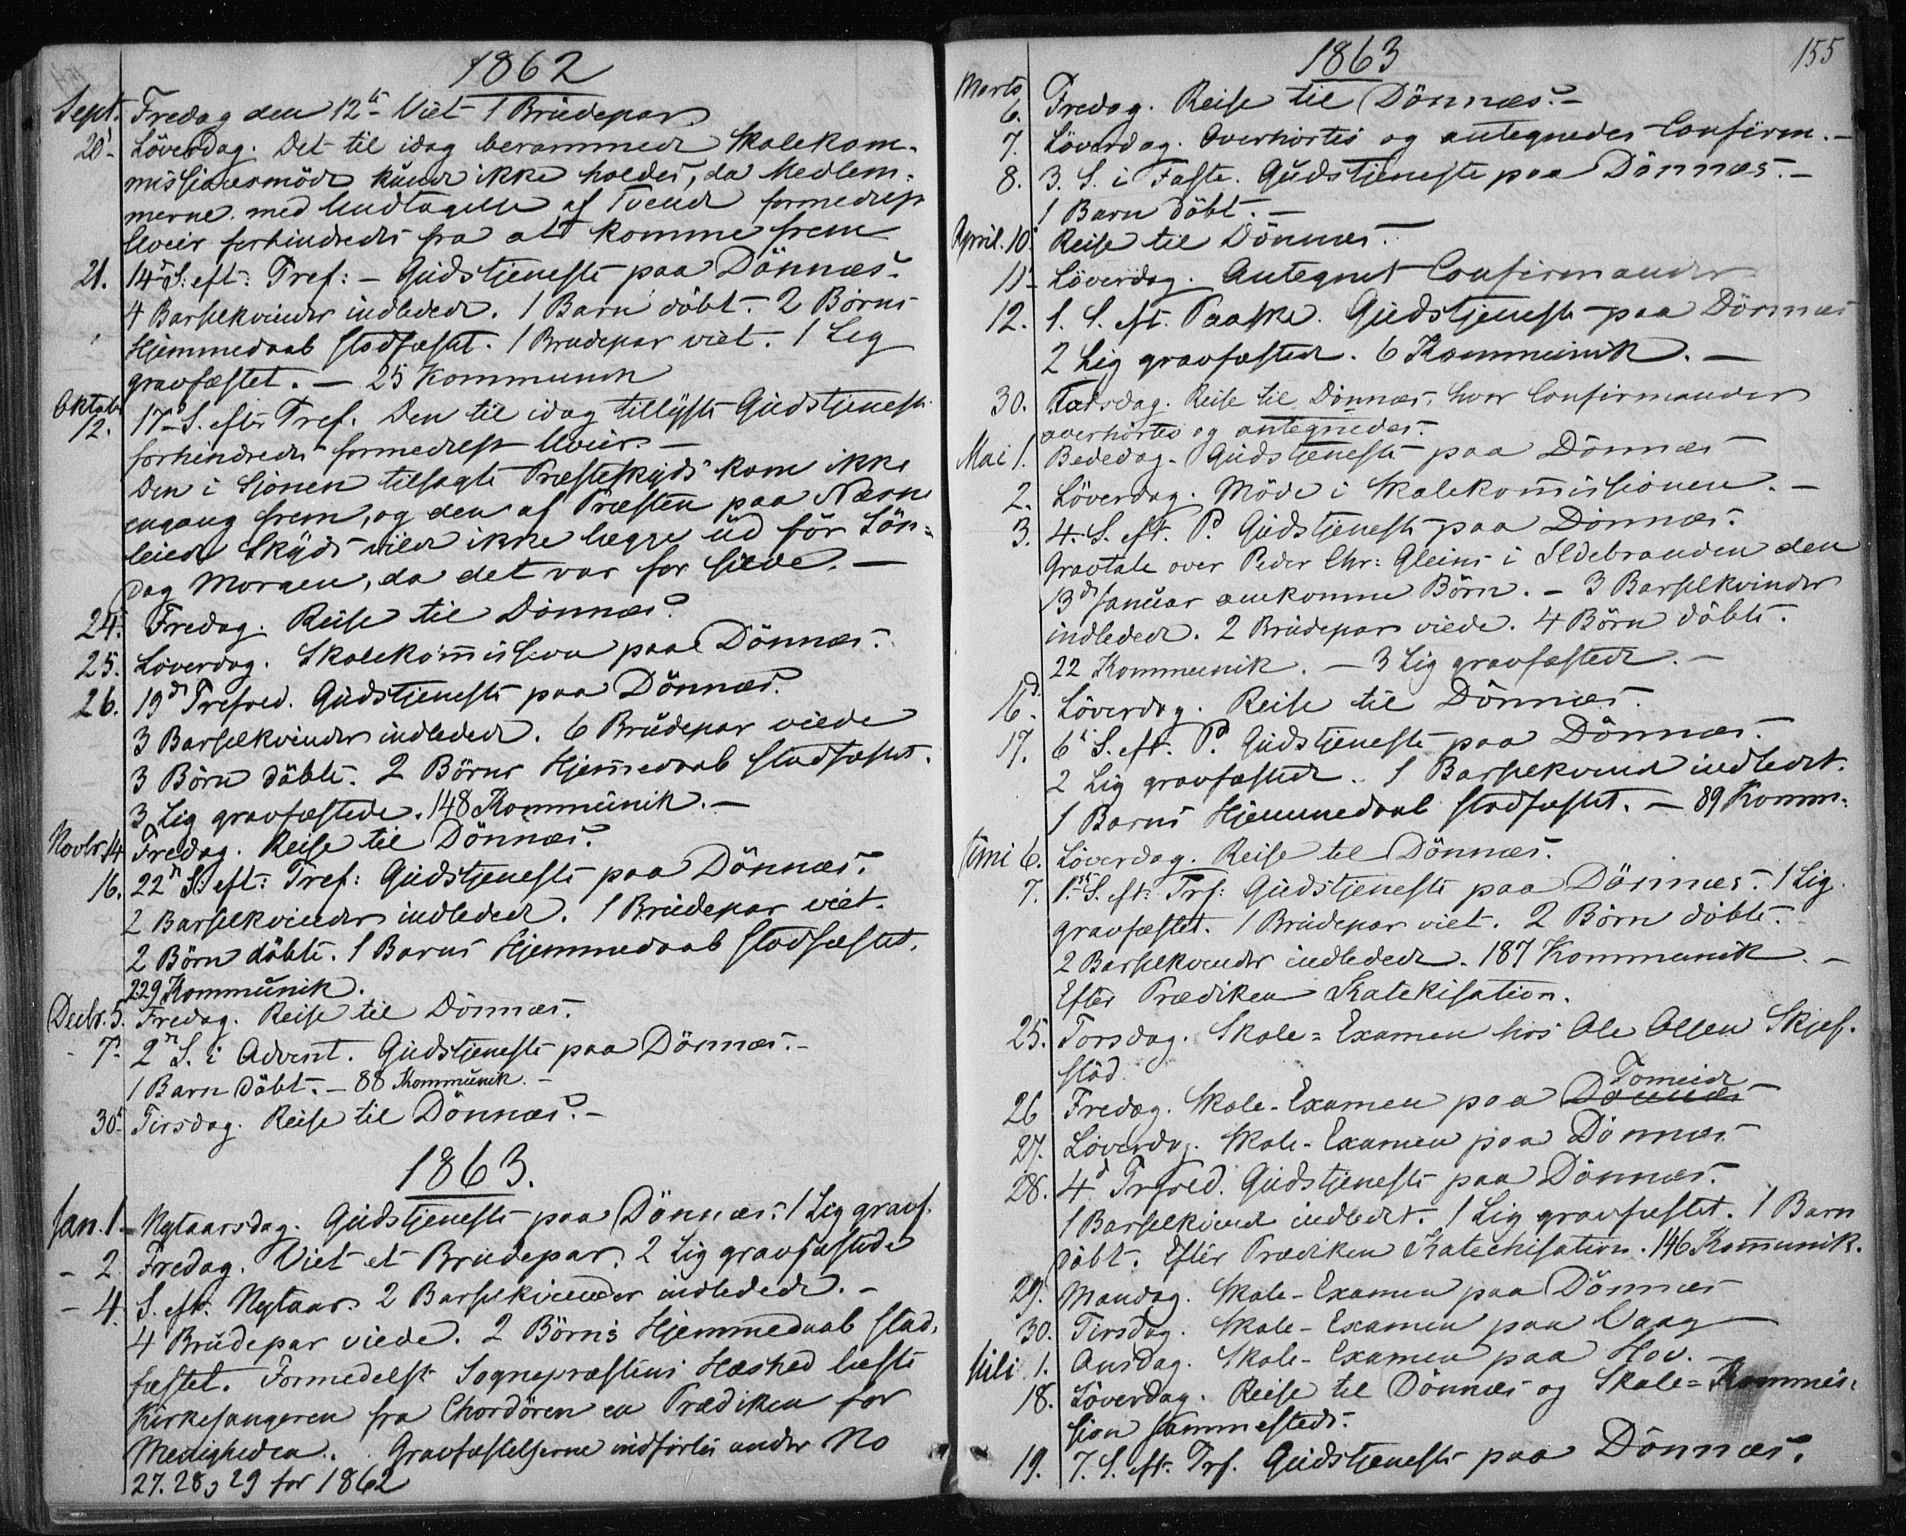 1862
Sept. Fredag den 12te Viet 1 Brudepar
20. Löverdag. Det til idag berammede Skolekom-
missionsmöde kunde ikke holdes, da Medlem-
merne med Undtagelse af Tvende formedelst
Uveir forhindredes fra at komme frem
21. 14de S. eft: Tref: - Gudstjeneste paa Dönnæs.
4 Barselkvinder indledede. 1 Barn döbt. 2 Börns
Hjemmedaab stadfæstet. 1 Brudepar viet. 1 Lig
gravfæstet. - 25 Kommunik
Oktob. 12. 17de S. efter Tref. Den til idag tillyste Gudstjeneste
forhindredes formedelst Uveir. -
Den i Sjonen tilsagte Præsteskyds kom ikke
engang frem, og den af Præsten paa Næsne
leiede Skyds vilde ikke lægge ud för Sön-
dag Morgen, da det var for silde. -
24. Fredag. Reise til Dönnæs.
25. Löverdag. Skolekommission paa Dönnæs.
26. 19de Trefold. Gudstjeneste paa Dönnæs.
3 Barselkvinder indledede. 6 Brudepar viede
3 Börn döbte. 2 Börns Hjemmedaab stadfæstet.
3 Lig gravfæstede. 148 Kommunik. -
Novbr. 14. Fredag. Reise til Dönnæs.
16. 22de S. eft: Tref: Gudstjeneste paa Dönnæs.
2 Barselkvinder indledede. 1 Brudepar viet.
2 Börn döbte. 1 Barns Hjemmedaab stadfæstet.
229 Kommunik.
Decbr. 5. Fredag. Reise til Dönnæs.
- 7. 2den S. i Advent. Gudstjeneste paa Dönnæs. -
1 Barn döbt. - 88 Kommunik. -
30. Tirsdag. Reise til Dönnæs. -
1863.
Jan. 1 - Nytaarsdag. Gudstjeneste paa Dönnæs. 1 Lig gravf.
- 2. Fredag. Viet et Brudepar. 2 Lig gravfæstede
- 4. S. eft. Nytaar. 2 Barselkvinder indledede. -
4 Brudepar viede. 2 Börns Hjemmedaab stad-
fæstet. Formedelst Sognepræstens Hæshed læste
Kirkesangeren fra Chordören en Prædiken for
Menigheden. Gravfæstelserne indförtes under No
27. 28, 29 for 1862
1863
155
Marts 6. Fredag. Reise til Dönnæs. -
7. Löverdag. Overhörtes og antegnedes Confirm. -
8. 3. S. i Faste. Gudstjeneste paa Dönnæs. -
1 Barn döbt. -
April. 10. Reise til Dönnæs.
11. Löverdag. Antegnet Confirmander
12. 1. S. eft. Paaske. Gudstjeneste paa Dönnæs
2 Lig gravfæstede. 6 Kommunik. -
30. Torsdag. Reise til Dönnæs, hvor Confirmander
overhörtes og antegnedes.
Mai 1. Bededag. Gudstjeneste paa Dönnæs
2. Löverdag. Möde i Skolekommissionen. -
3. 4. S. eft. P. Gudstjeneste paa Dönnæs.
Gravtale over Peder Chr: Gleins i Ildebranden den
13de Januar omkomne Börn. - 3 Barselkvinder
indledede. 2 Brudepar viede. 4 Börn döbte.
22 Kommunik. - 3 Lig gravfæstede. -
16. Löverdag. Reise til Dönnæs.
17. 6te S. eft. P. Gudstjeneste paa Dönnæs.
2 Lig gravfæstede. 1 Barselkvinde indledet.
1 Barns Hjemmedaab stadfæstet. - 89 Komm.
Juni 6. Löverdag. Reise til Dönnæs.
7. 1ste S. eft. Trf: Gudstjeneste paa Dönnæs. 1 Lig
gravfæstet. 1 Brudepar viet. 2 Börn döbte.
2 Barselkvinder indledede. 187 Kommunik. -
Efter Prædiken Katekisation.
25. Torsdag. Skole-Examen hos Ole Olsen Skjef-
stöd.
26 Fredag. Skole-Examen paa Dönnæs Tomeide
27. Löverdag. Skole-Examen paa Dönnæs
28. 4de Trefold. Gudstjeneste paa Dönnæs.
1 Barselkvinde indledet. 1 Lig gravfæstet. 1 Barn
döbt. Efter Prædiken Katechisation. 146 Kommunik.
29. Mandag. Skole-Examen paa Dönnæs
30. Tirsdag. Skole-Examen paa Vaag
Juli 1. Onsdag. Skole-Examen paa Hov. -
18. Löverdag. Reise til Dönnæs og Skole-Kommis-
sion sammesteds.
19. 7. S. eft. Trf. Gudstjeneste paa Dönnæs.